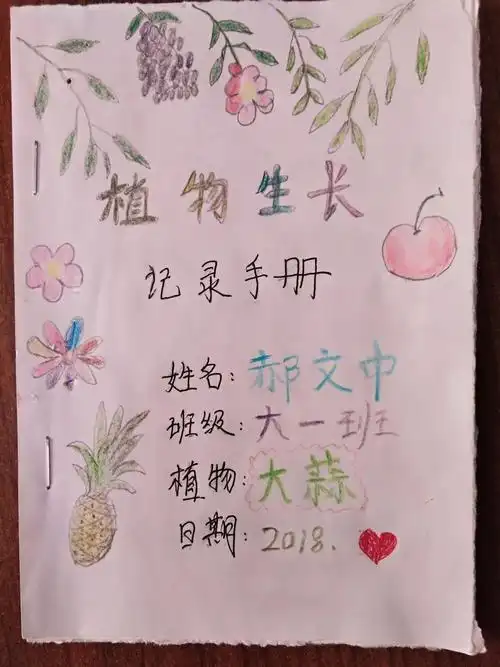 植物生长
记录手册
姓名：郝文中
班级：大一班
植物：大蒜
日期：2018.